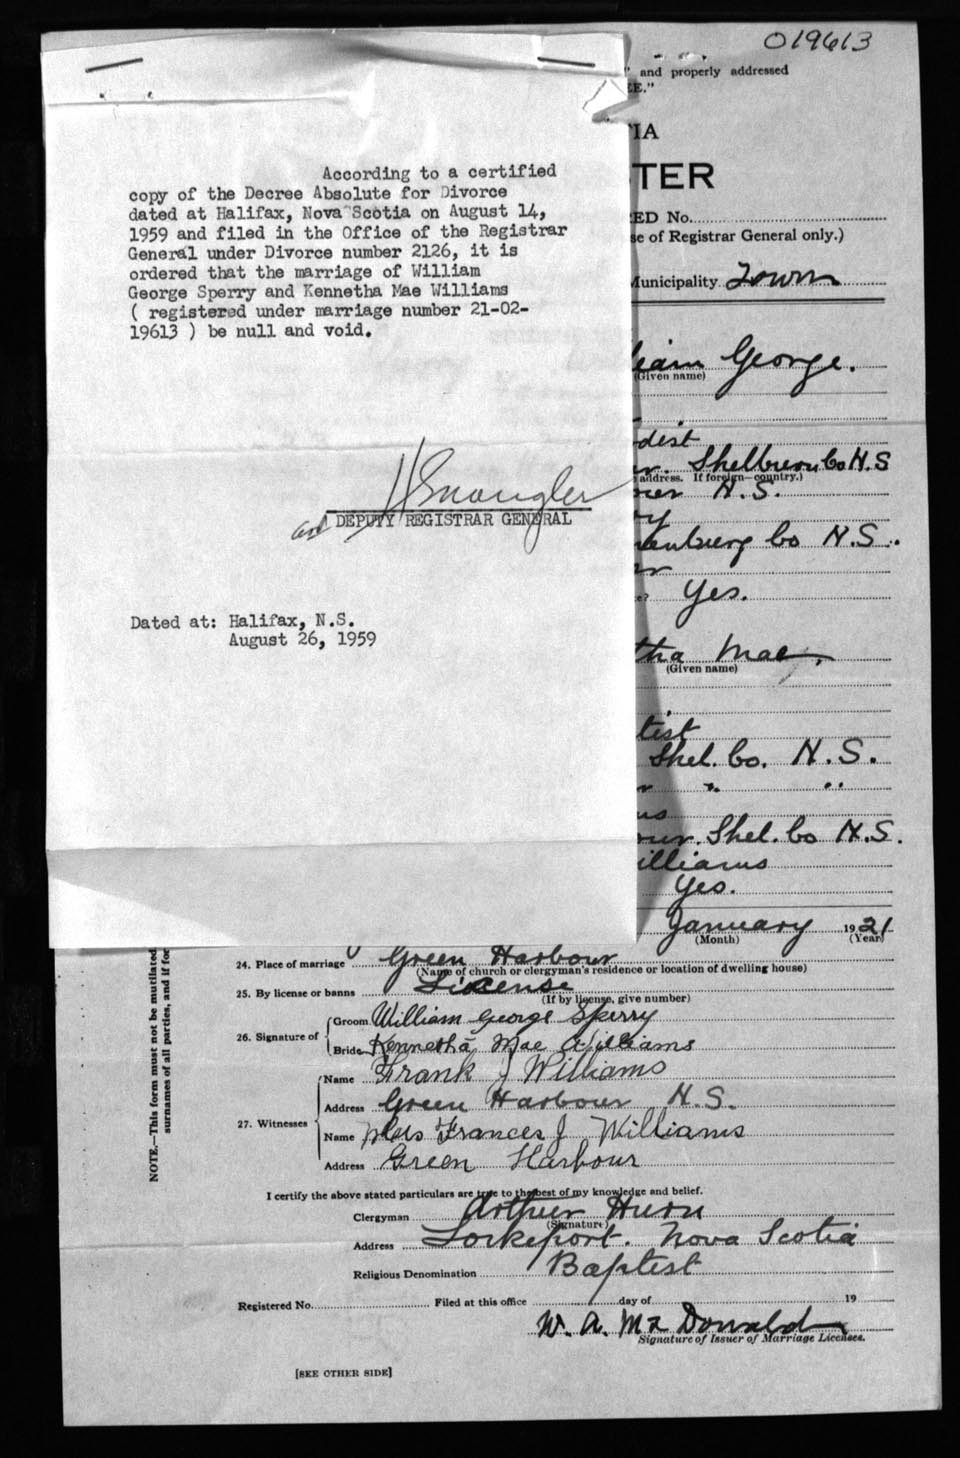 019613
" and properly addressed
EE."
TIA
TER
ED No.
se of Registrar General only.)
Municipality Town
According to a certified
copy of the Decree Absolute for Divorce
dated at Halifax, Nova Scotia on August 14,
1959 and filed in the Office of the Registrar
General under Divorce number 2126, it is
ordered that the marriage of William
George Sperry and Kennetha Mae Williams
( registered under marriage number 21-02-
19613 ) be null and void.
DEPUTY REGISTRAR GENERAL
Dated at: Halifax, N.S.
August 26, 1959
liam George.
(Given name)
dist
Shelburne Co N.S
address. If foreign—country.)
N.S.
enburg Co N.S.
Yes.
tha Mae
(Given name)
tist
Shel. Co. N.S.
" "
our. Shel. Co N.S.
illiams
Yes.
January 1921
(Month) (Year)
24. Place of marriage Green Harbour
(Name of church or clergyman's residence or location of dwelling house)
25. By license or banns License
(If by license, give number)
26. Signature of
Groom William George Sperry
Bride Kennetha Mae Williams
27. Witnesses
Name Frank J Williams
Address Green Harbour N.S.
Name Mrs Frances J Williams
Address Green Harbour
I certify the above stated particulars are true to the best of my knowledge and belief.
Clergyman Arthur
(Signature)
Address Lockeport. Nova Scotia
Religious Denomination Baptist
Registered No. Filed at this office day of 19
W. A. McDonald
Signature of Issuer of Marriage Licenses.
[SEE OTHER SIDE]
NOTE.—This form must not be mutilated
surnames of all parties, and if for